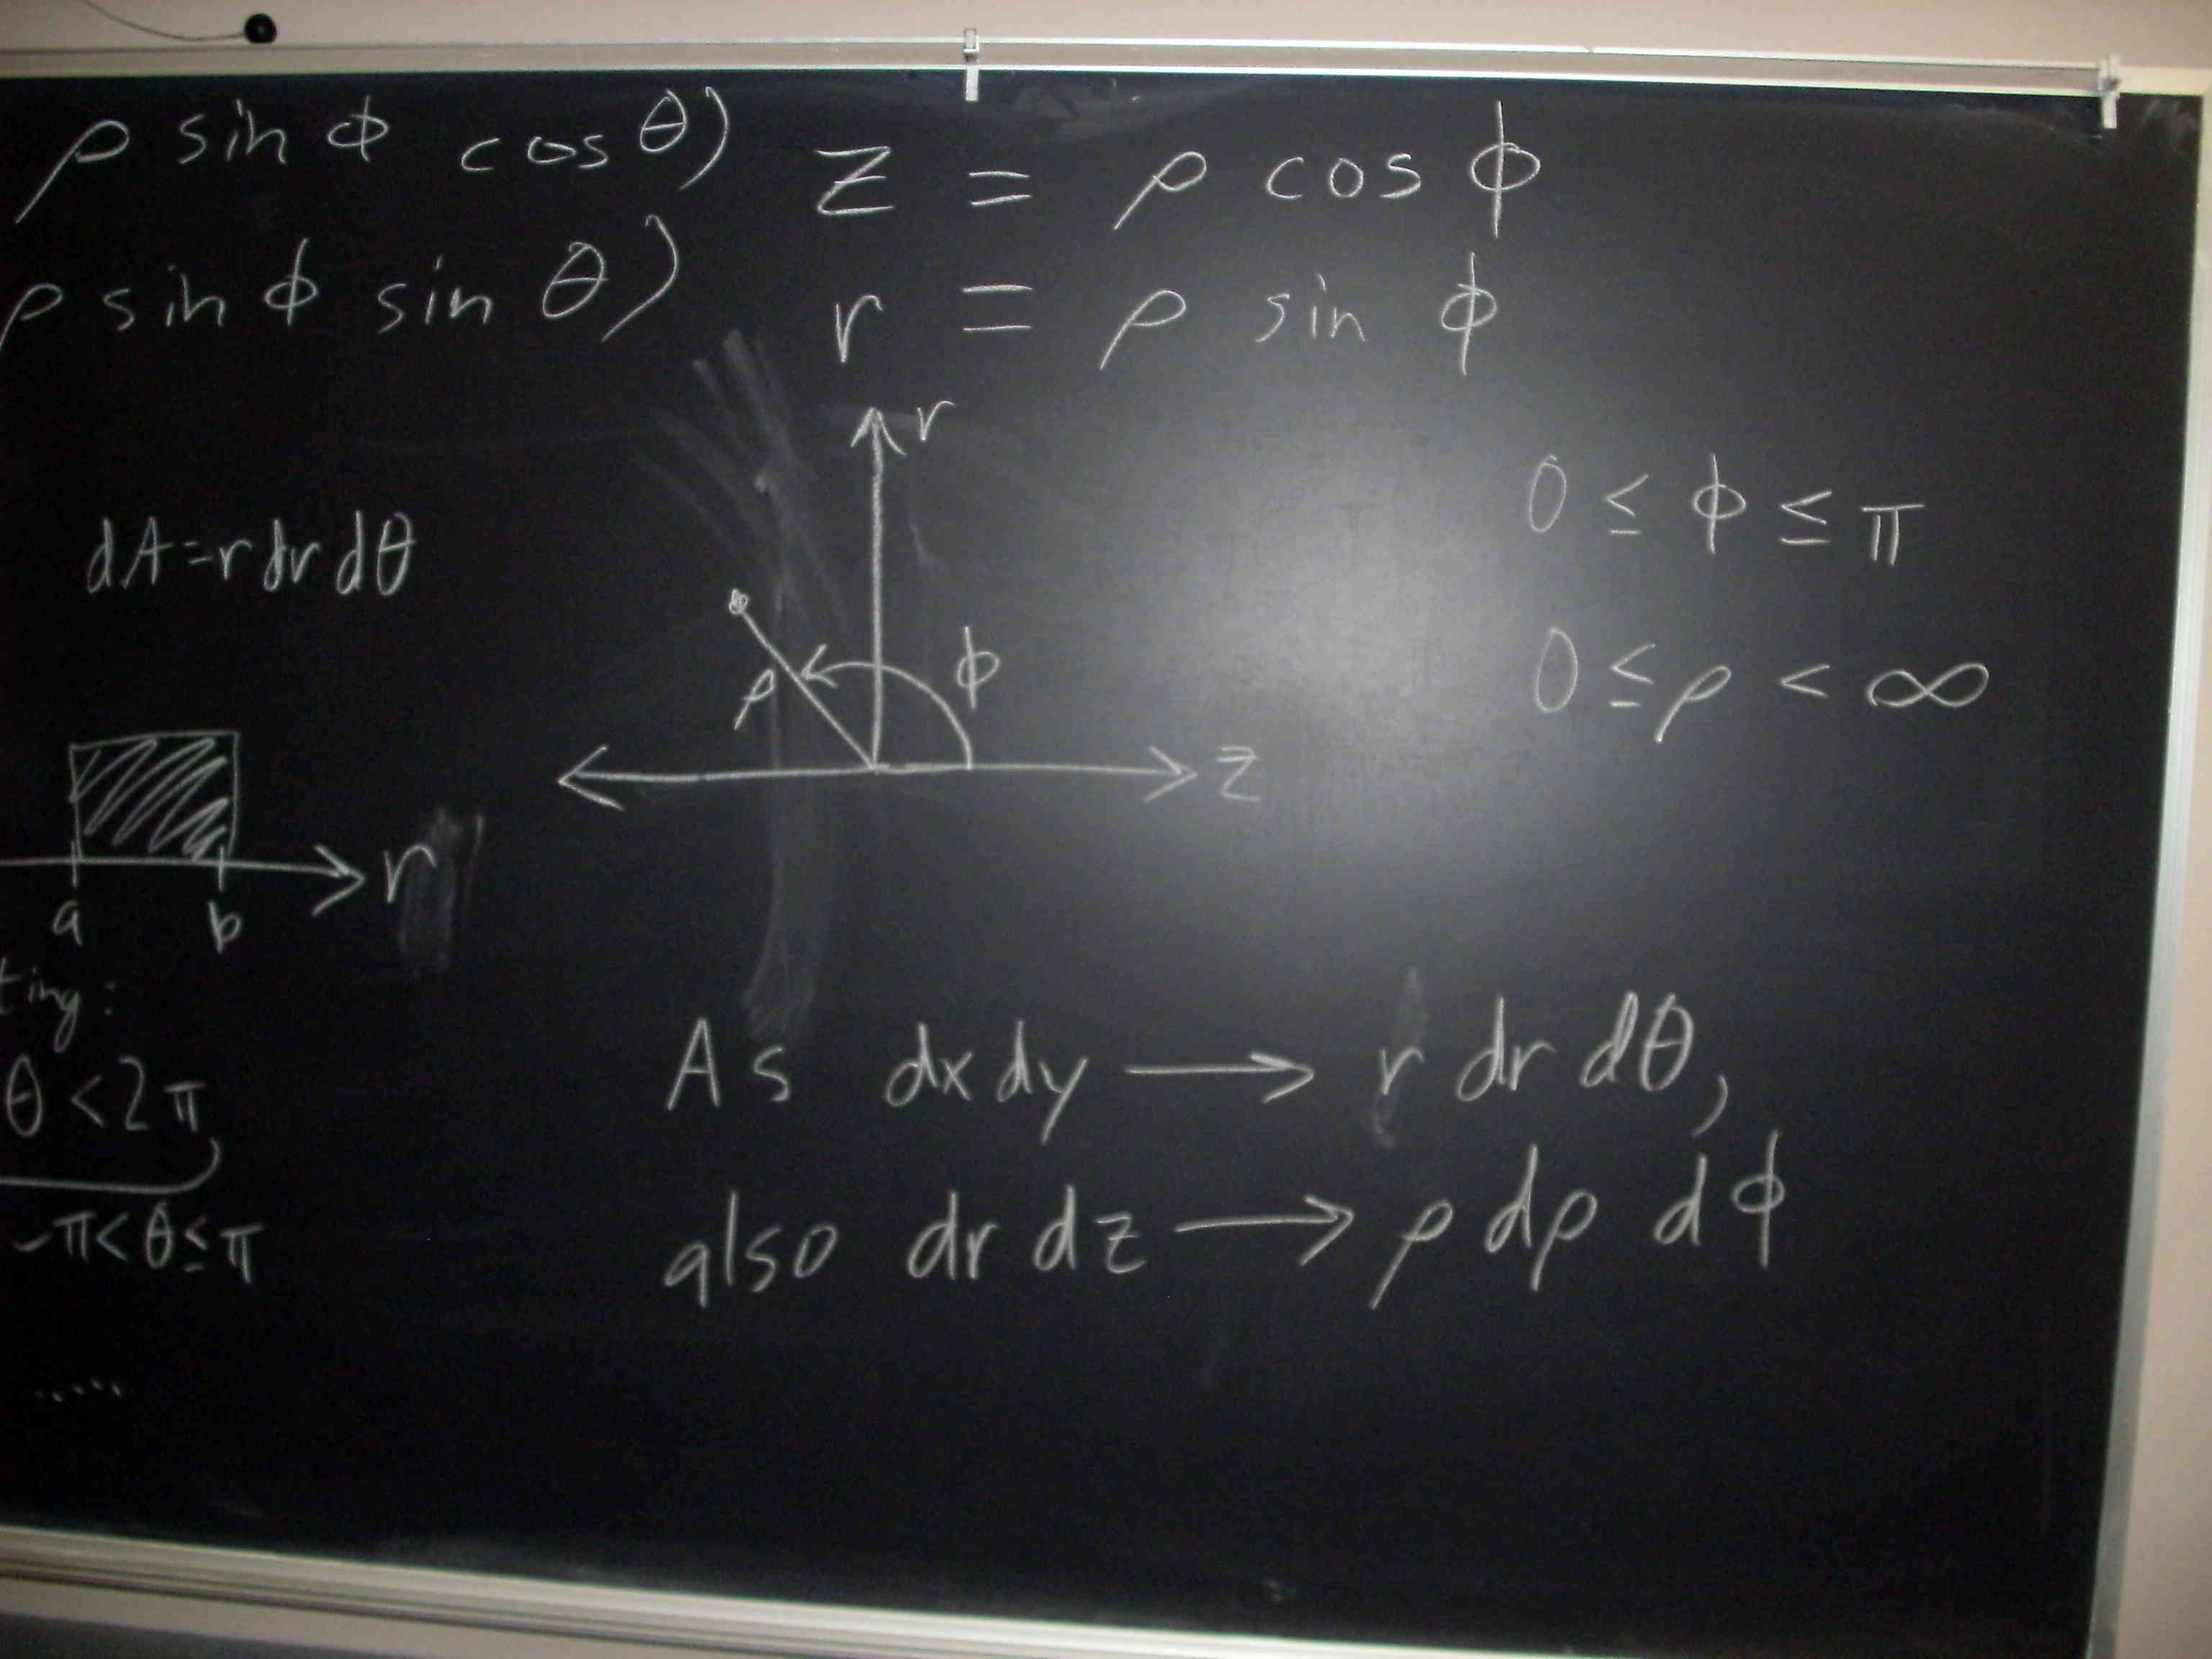 ρ sin ϕ cos θ)
ρ sin ϕ sin θ)
z = ρ cos ϕ
r = ρ sin ϕ
dA=r dr dθ
r
ϕ
ρ
z
0 ≤ ϕ ≤ π
0 ≤ ρ < ∞
r
a b
ting:
θ < 2π
-π < θ ≤ π
As dx dy → r dr dθ,
also dr dz → ρ dρ dϕ